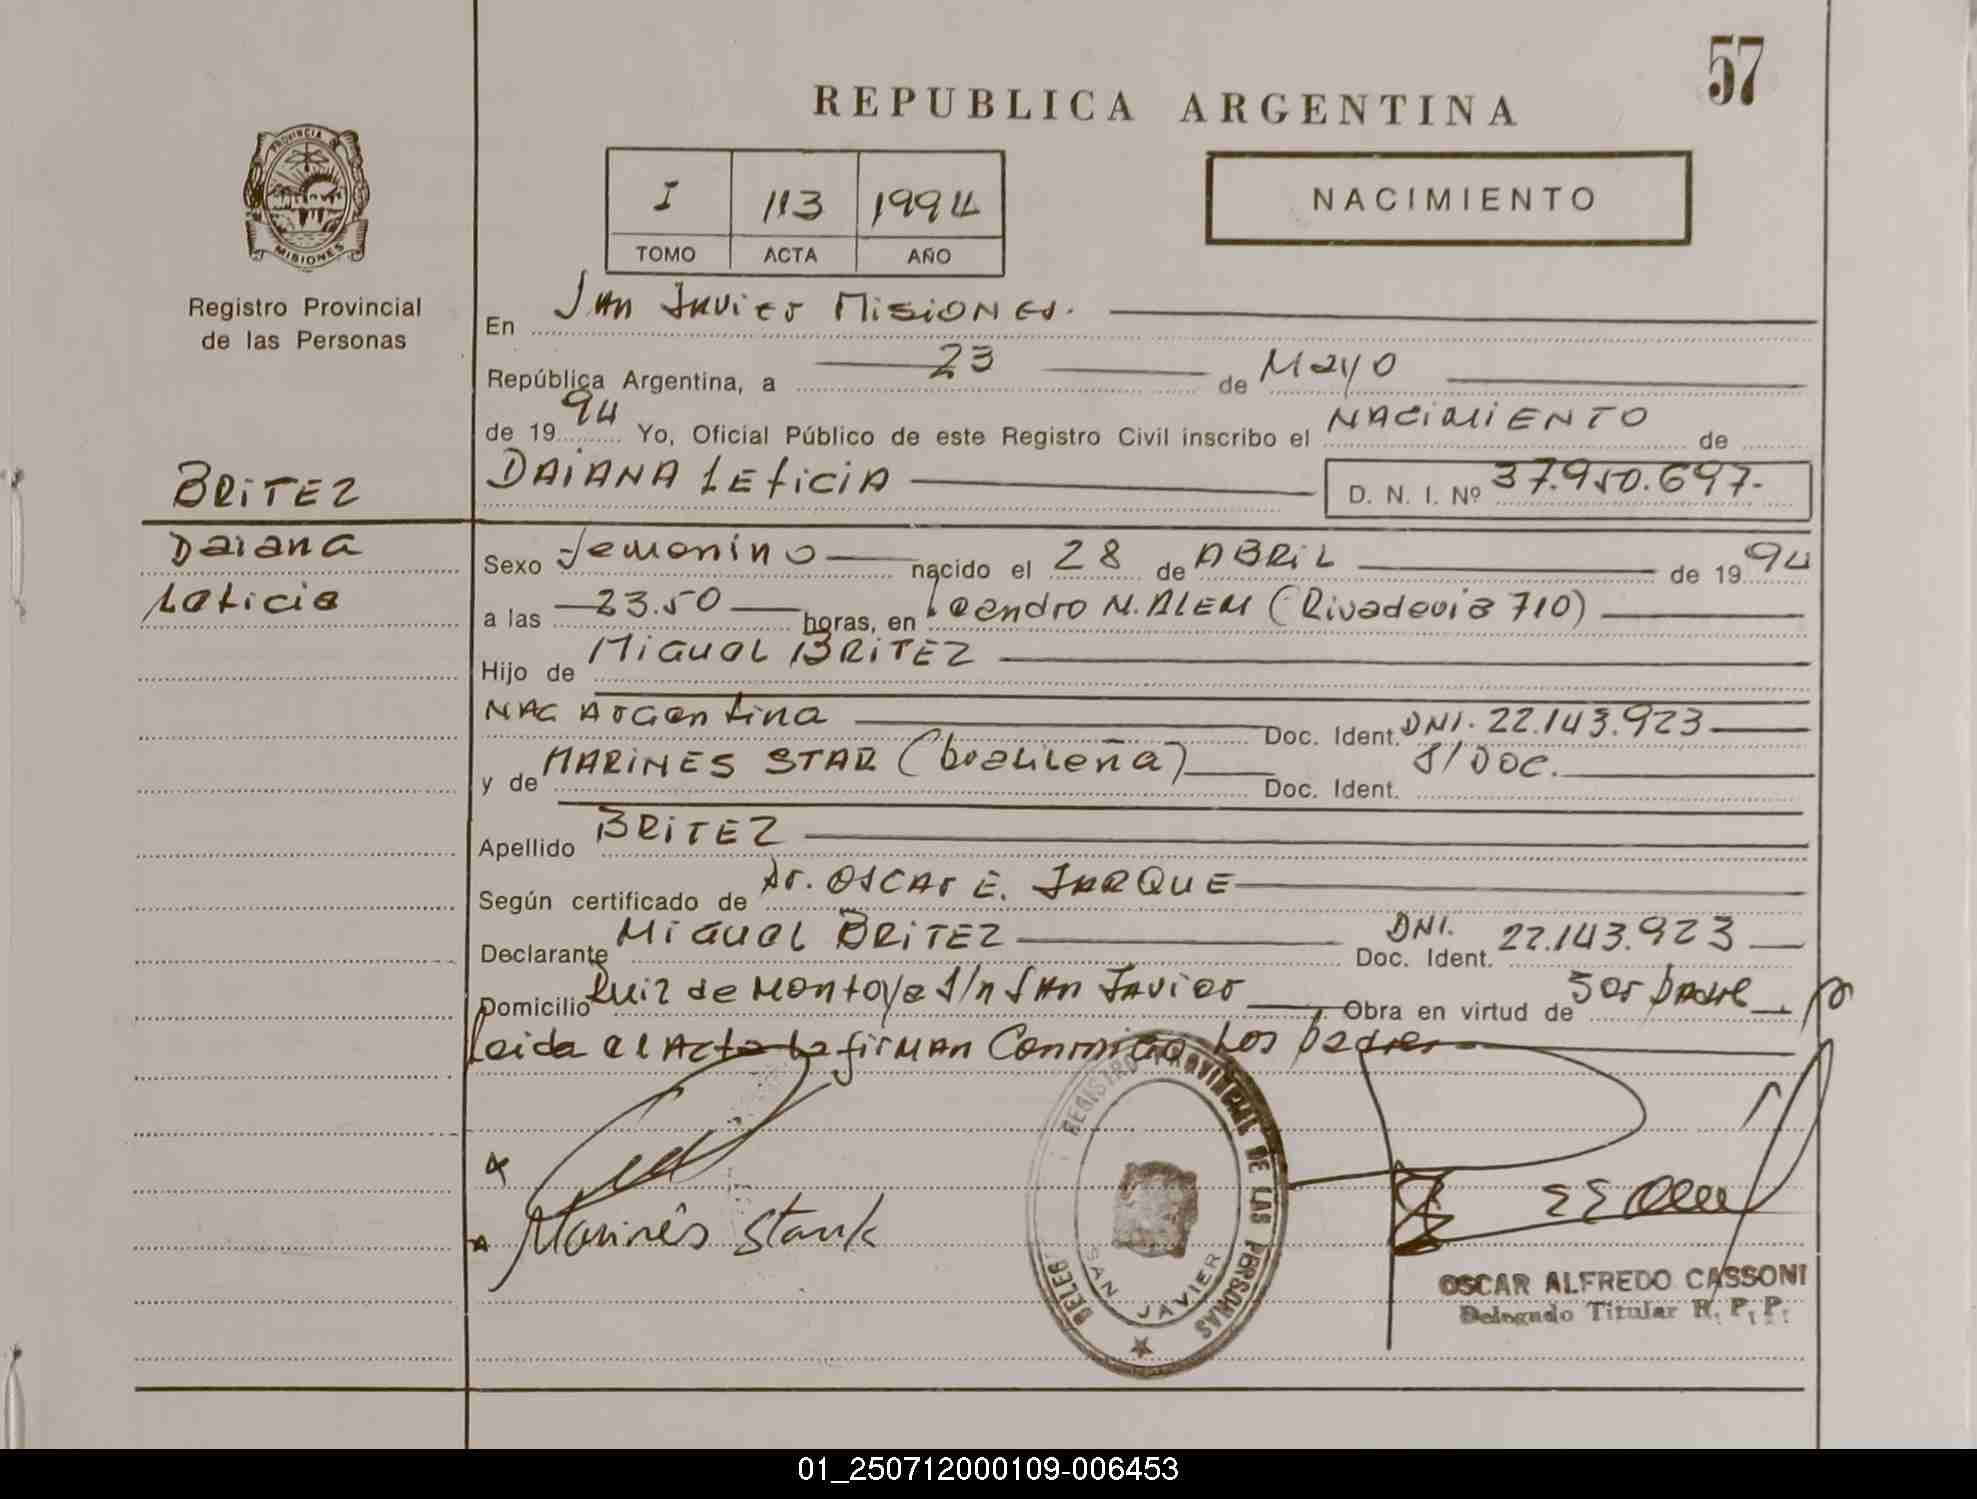 57
REPUBLICA ARGENTINA
PROVINCIA
MISIONES
Registro Provincial
de las Personas
I 113 1994
TOMO ACTA AÑO
NACIMIENTO
En San Javier Misiones.
República Argentina, a 23 de Mayo
de 1994 Yo, Oficial Público de este Registro Civil inscribo el NACIMIENTO de
BRITEZ
DAIANA LETICIA D. N. I. Nº 37.950.697.
Daiana
Leticia
Sexo Femenino nacido el 28 de ABRIL de 1994
a las 23.50 horas, en Leandro N. ALEM (Rivadavia 710)
Hijo de Miguel BRITEZ
NAC Argentina Doc. Ident. DNI. 22.143.923
y de MARINES STAR (brasileña) Doc. Ident. S/DOC.
Apellido BRITEZ
Según certificado de Dr. OSCAR E. JARQUE
Declarante Miguel BRITEZ DNI. Doc. Ident. 22.143.923
Domicilio Ruiz de Montoya S/n San Javier Obra en virtud de Ser padre
Leida el Acta la firman Conmigo Los padres
Marinês Stark
REGISTRO PROVINCIAL DE LAS PERSONAS
DELEG.
SAN JAVIER
OSCAR ALFREDO CASSONI
Delegado Titular R. P. P.
01_250712000109-006453